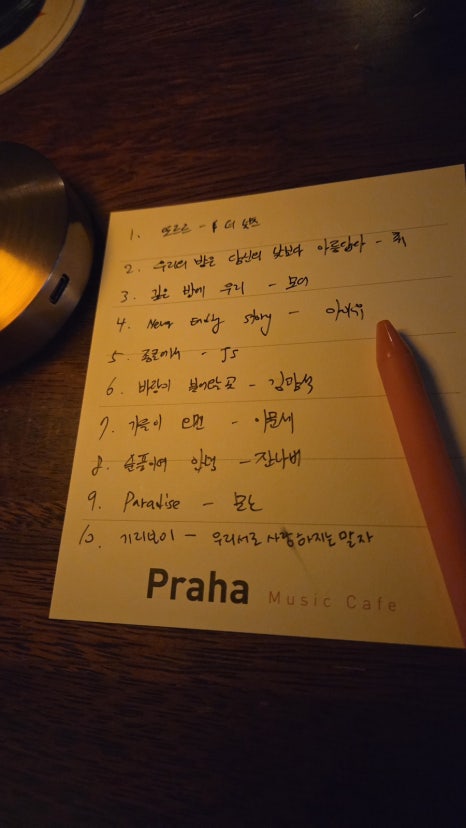 1. 또르르 -
2. 우리의 밤은 당신의 낮보다 아름답다 -
3. 깊은 밤에 우리 -
4. Never Ending Story - 아이유
5. 종로에서 - JS
6. 바람이 불어오는 곳 - 김광석
7. 가을이 오면 - 이문세
8. 슬픔이여 안녕 - 잔나비
9. Paradise -
10. 기리보이 - 우리서로 사랑하지는 말자
Praha Music Cafe